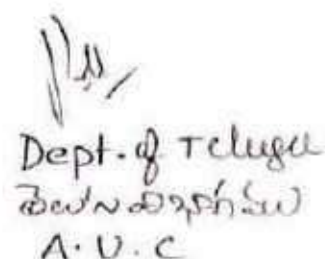 Dept. of Telugu
తెలుగు విభాగము
A. U. C